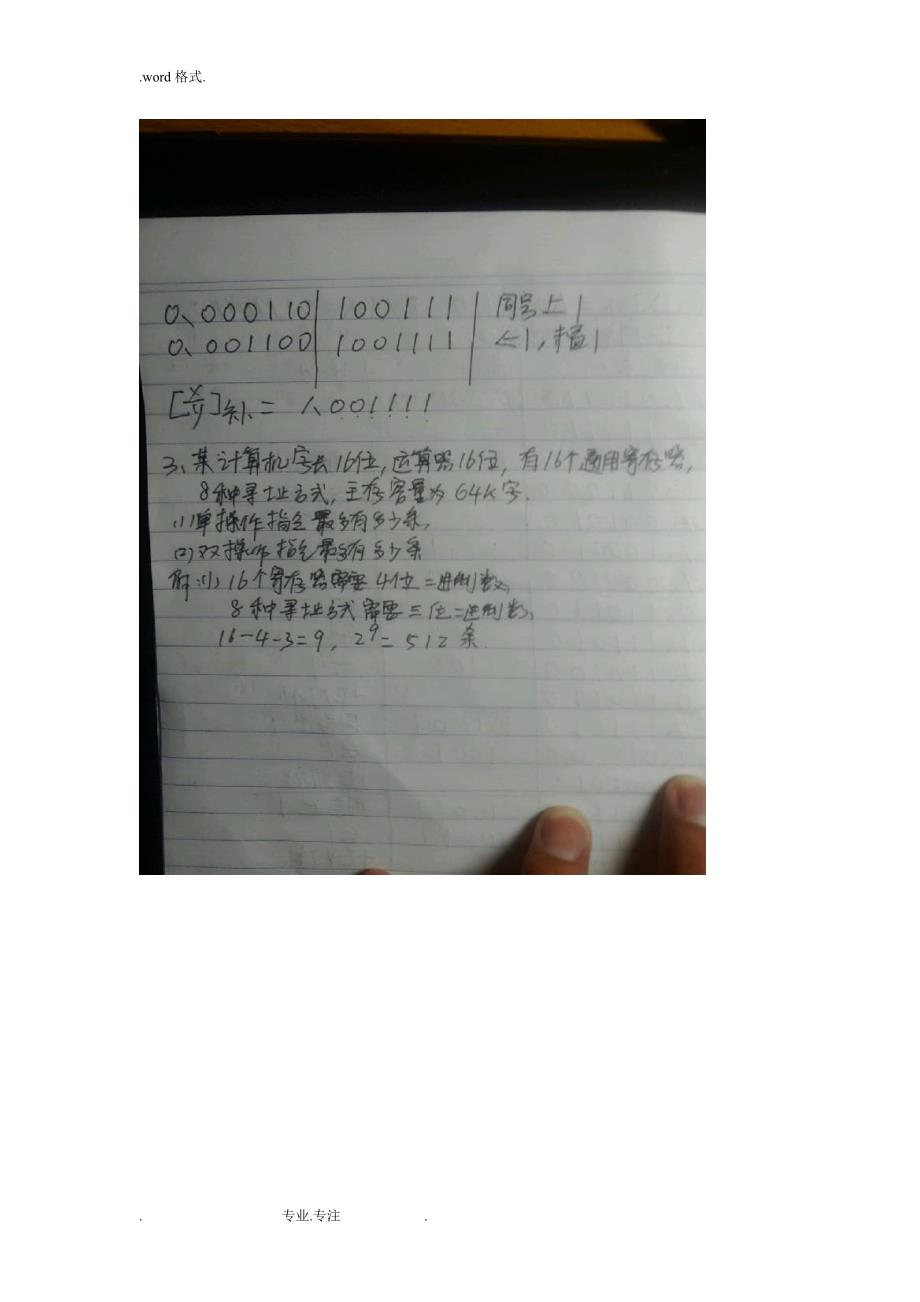 .word 格式.
0、000110 100111 同号上1
0、001100 1001111 左1，末置1
[x/y]补 = 1、001111
3、某计算机字长16位，运算器16位，有16个通用寄存器，
8种寻址方式，主存容量为64K字.
(1)单操作指令最多有多少条，
(2)双操作指令最多有多少条
解：(1) 16个寄存器需要4位二进制数，
8种寻址方式需要三位二进制数，
16-4-3=9，2^9=512条.
. 专业.专注 .